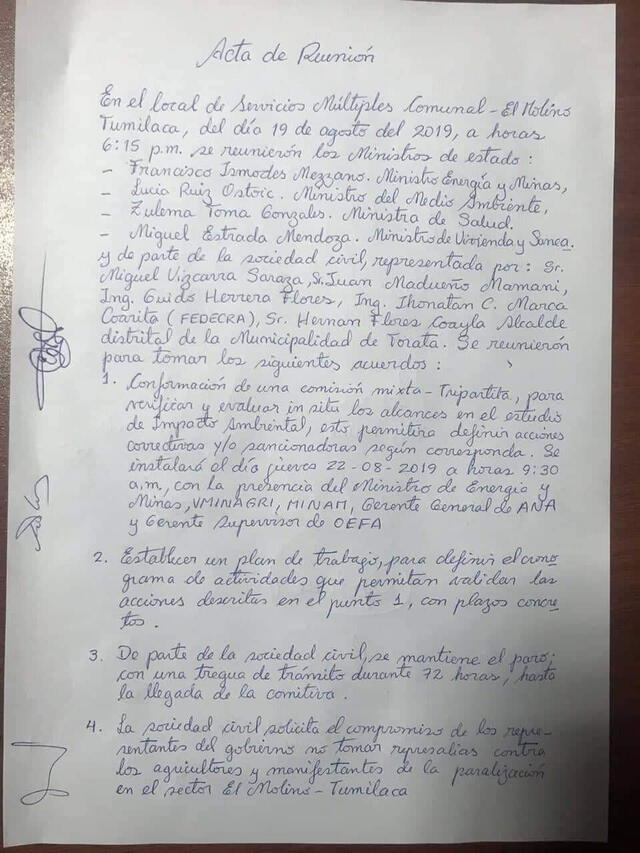 Acta de Reunión
En el local de Servicios Múltiples Comunal - El Molino
Tumilaca, del día 19 de agosto del 2019, a horas
6:15 p.m. se reunierón los Ministros de estado :
- Francisco Ismodes Mezzano. Ministro Energía y Minas,
- Lucia Ruiz Ostoic. Ministra del Medio Ambiente,
- Zulema Toma Gonzales. Ministra de Salud.
- Miguel Estrada Mendoza. Ministro de Vivienda y Sanea.
y de parte de la sociedad civil, representada por : Sr.
Miguel Vizcarra Saraza, Sr. Juan Madueño Mamani,
Ing. Guido Herrera Flores, Ing. Jhonatan C. Marca
Coarita (FEDECRA), Sr. Hernan Flores Coayla Alcalde
distrital de la Municipalidad de Torata. Se reunierón
para tomar los siguientes acuerdos :
1. Conformación de una comisión mixta - Tripartita, para
verificar y evaluar in situ los alcances en el estudio
de Impacto Ambiental, esto permitira definir acciones
corectivas y/o sancionadoras según corresponda. Se
instalará el día jueves 22-08-2019 a horas 9:30
a.m., con la presencia del Ministro de Energía y
Minas, VMINAGRI, MINAM, Gerente General de ANA
y Gerente Supervisor de OEFA
2. Establecer un plan de trabajo, para definir el crono
grama de actividades que permitan validar las
acciones descritas en el punto 1, con plazos concre
tos .
3. De parte de la sociedad civil, se mantiene el paro;
con una tregua de tránsito durante 72 horas, hasta
la llegada de la comitiva .
4. La sociedad civil solicita el compromiso de los repre-
sentantes del gobierno no tomar represalias contra
los agricultores y manifestantes de la paralización
en el sector El Molino - Tumilaca